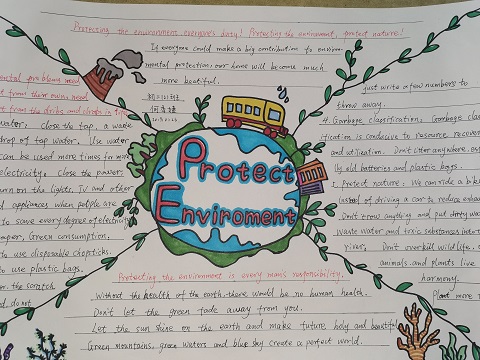 Protecting the environment everyone's duty! Protecting the environment, protect nature!
If everyone could make a big contribution to environ-
mental protection, our home will become much
more beautiful.
mental problems need
water, close the tap, a waste
drop of tap water. Use water
can be used more times for more
electricity. Close the power,
turn on the lights, TV and other
appliances when people are
to save every degree of electricity
paper, Green consumption.
to use disposable chopsticks.
to use plastic bags.
the scratch
do not
Protect
Enviroment
just write a few numbers to
throw away.
4. Garbage classification. Garbage class
ification is conducive to resource recovery
and utilization. Don't litter anywhere, espe
lly old batteries and plastic bags.
Protect nature: We can ride a bike
instead of driving a car to reduce exha
Don't throw anything and put dirty
waste water and toxic substances into
river. Don't over kill wild life,
animals and plants live
harmony.
Plant more
Protecting the environment is every man's responsibility.
Without the health of the earth, there would be no human health.
Don't let the green fade away from you.
Let the sun shine on the earth and make future holy and beautiful
Green mountains, green waters and blue sky create a perfect world.